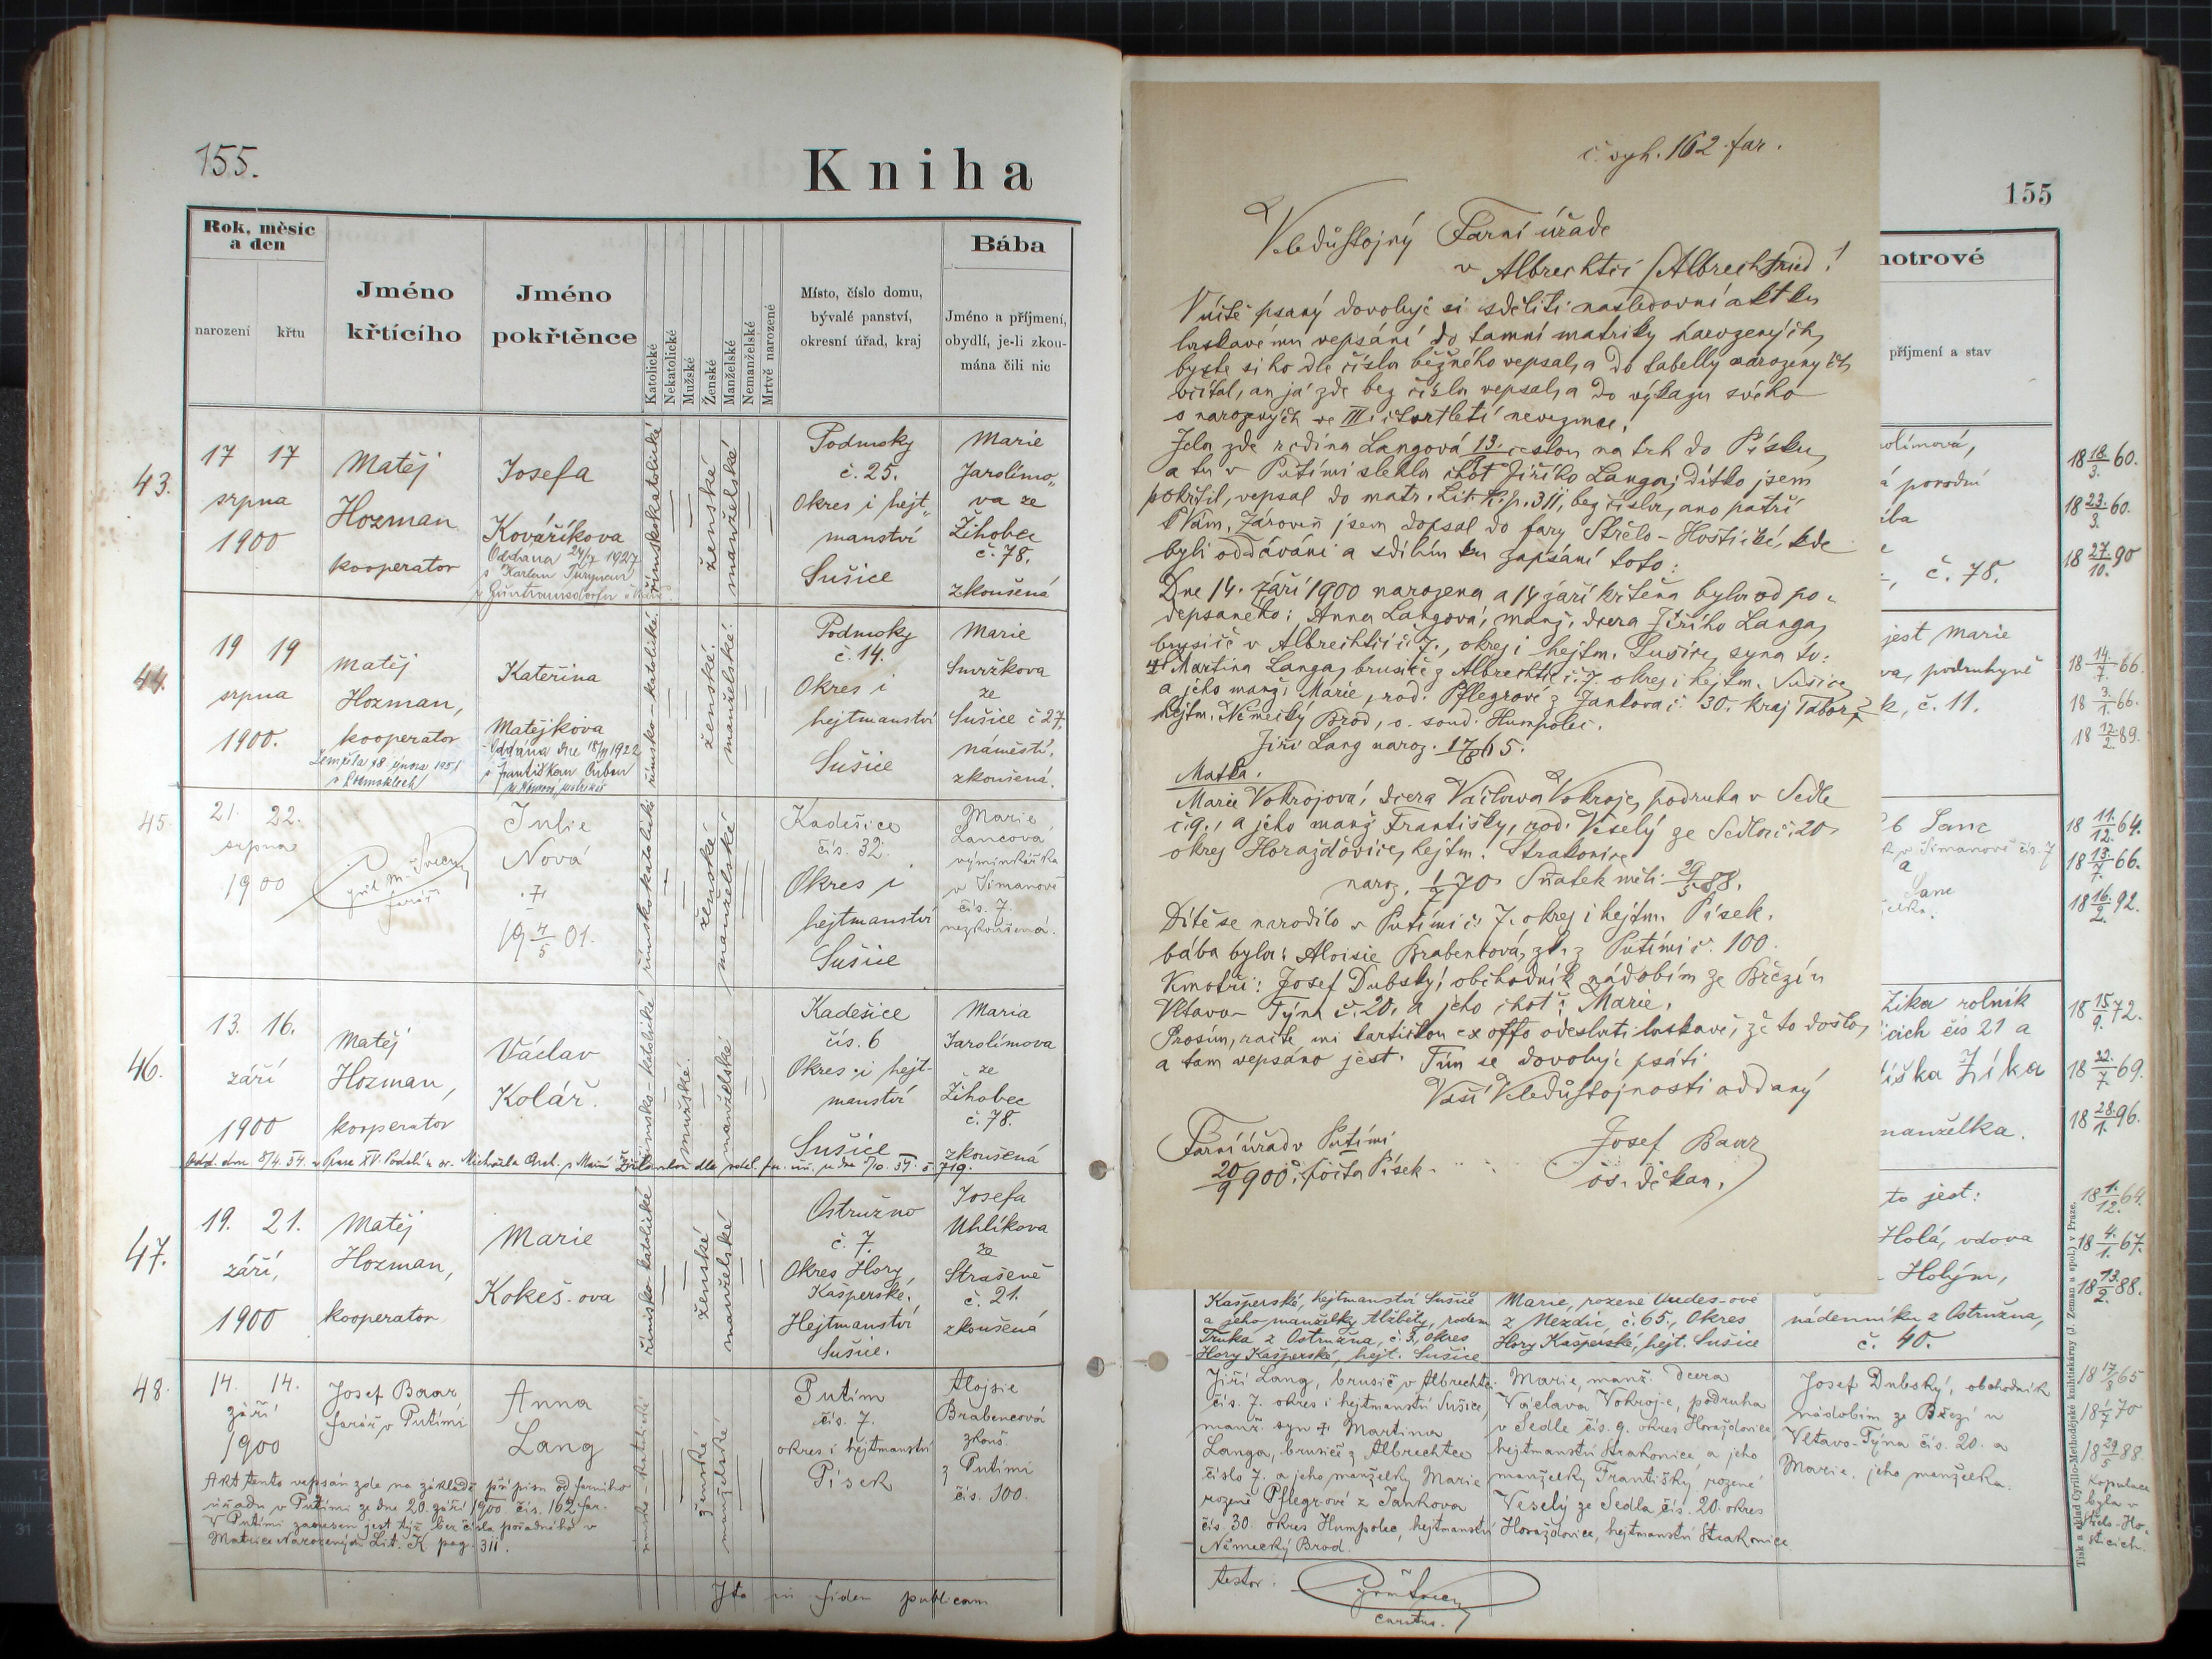 155.
Kniha
Rok, měsíc
a den
narození
křtu
Jméno
křtícího
Jméno
pokřtěnce
Katolické
Nekatolické
Mužské
Ženské
Manželské
Nemanželské
Mrtvě narozené
Místo, číslo domu,
bývalé panství,
okresní úřad, kraj
Bába
Jméno a příjmení,
obydlí, je-li zkou-
mána čili nic
43.
17 17
srpna
1900
Matěj
Hozman
kooperator
Josefa
Kovaříkova
Oddána 24/7 1927
s Karlem
římskokatolické
ženské
manželské
Podmoky
č. 25.
Okres i hejt„
manství
Sušice
Marie
Jarolimo„
va ze
Žihobec
č. 78.
zkoušená
44.
19 19
srpna
1900.
Matěj
Hozman,
kooperator
Zemřela 18 února 1951
v
Kateřina
Matějkova
Oddána dne 18/11 1922
s Františkem
římsko-katolické.
ženské.
manželské.
Podmoky
č. 14.
Okres i
hejtmanství
Sušice
Marie
Smržkova
ze
Sušice č 27,
náměstí,
zkoušená.
45.
21. 22.
srpna
1900
farář
Julie
Nová
†
19 4/5 01.
římskokatolické
ženské
manželské
Kadešice
čís. 32.
Okres i
hejtmanství
Sušice
Marie
Lancová
výminkářka
v Šimanově
čís. 7.
nezkoušená.
46.
13. 16.
září
1900
Matěj
Hozman,
kooperator
Václav
Kolář.
římsko-katolické
mužské.
manželské
Kadešice
čís. 6
Okres i hejt-
manství
Sušice
Maria
Jarolímova
ze
Žihobec
č. 78.
zkoušená
47.
19. 21.
září,
1900
Matěj
Hozman,
kooperator
Marie
Kokeš-ova
římsko-katolické
ženské
manželské
Ostružno
č. 7.
Okres Hory
Kašperské,
Hejtmanství
Sušice.
Josefa
Uhlíkova
ze
Strašeně
č. 21.
zkoušená
48.
14. 14.
září
1900
Josef Baar
farář v Putimi
Anna
Lang
římsko-katolické
ženské
manželské
Putim
čís. 7.
okres i hejtmanství
Písek
Alojsie
Brabencová
zkouš.
z Putimi
čís. 100.
Akt tento vepsán zde na základě přípisu od farního
úřadu v Putimi ze dne 20. září 1900. čís. 162 far.
V Putimi zanesen jest týž bez čísla pořadního v
Matrice Narozených Lit. K pag. 311.
Ita in fidem publicam
č. vyh. 162 far.
Veledůstojný Farní úřade
v Albrechtici /Albrechtsried!
Níže psaný dovoluje si sděliti následovní akt ku
laskavému vepsání do tamní matriky narozených,
byste si ho dle čísla běžného vepsal, a do tabelly narozených
včítal, an já zde bez čísla vepsal, a do výkazu svého
o narozených ve III. čtvrtletí nevezmu.
Jela zde rodina Langová 13. cestou na trh do Písku,
a tu v Putimi slehla choť Jiřího Langa; dítko jsem
pokřtil, vepsal do matr. Lit. K. p. 311, bez čísla, ano patří
k Vám. Zároveň jsem dopsal do fary Střelo-Hoštické, kde
byli oddáváni a sdílím ku zapsání toto:
Dne 14. září 1900 narozena a 14 září křtěna byla od po-
depsaného: Anna Langová, manž. dcera Jiřího Langa,
brusiče v Albrechtici č. 7., okres i hejtm. Sušice, syna to:
† Martina Langa, brusiče z Albrechtic č. 7. okres i hejtm. Sušice
a jeho manž. Marie, rod. Pflegrové z Jankova č. 30. kraj Tábor,
hejtm. Německý Brod, o. soud. Humpolec.
Jiří Lang naroz. 17/8 65.
Matka.
Marie Vokrojová, dcera Václava Vokroje, podruha v Sedle
č. 9., a jeho manž. Františky, rod. Veselý ze Sedla č. 20
okres Horažďovice, hejtm. Strakonice
naroz. 1/7 70 Sňatek měli 29/5 88.
Dítě se narodilo v Putimi č. 7. okres i hejtm. Písek.
bába byla: Aloisie Brabentová, zk. z Putimi č. 100.
Kmotři: Josef Dubský, obchodník nádobím ze Březí u
Vltavo-Týna č. 20. a jeho choť: Marie.
Prosím, račte mi lartičkou ex offo odeslati laskavě, že to došlo,
a tam vepsáno jest. Tím se dovoluje psáti
Vaší Veledůstojnosti oddaný
Farní úřad v Putimi
20/9 900. pošta Písek.
Josef Baar
os. děkan.
155
motrové
příjmení a stav
č. 78.
18 18/3. 60.
18 23./3. 60.
18 27/10. 90
jest Marie
podruhyně
č. 11.
18 14./7. 66.
18 3./1. 66.
18 12./2. 89.
Lanc
v Šimanově čís. 7
a
18 11./12. 64.
18 13./7. 66.
18 16./2. 92.
Žika rolník
čís 21 a
Žíka
manželka.
18 15./9. 72.
18 22./7. 69.
18 28./1. 96.
to jest:
Holá, vdova
Holým,
nádenníku z Ostružna,
č. 40.
18 1./12. 64.
18 4./1. 67.
18 13./2. 88.
Kašperské, hejtmanství Sušice
a jeho manželky Alžběty, rodem
Truka z Ostružna, č. 3., okres
Hory Kašperské, hejt. Sušice
Marie, rozené Oudes-ové
z Nezdic, č. 65., Okres
Hory Kašperské, hejt. Sušice
Jiří Lang, brusič v Albrechtci
čís. 7. okres i hejtmanství Sušice,
manž. syn † Martina
Langa, brusiče z Albrechtce
číslo 7. a jeho manželky Marie
rozené Pflegr-ové z Jankova
čís. 30. okres Humpolec, hejtmanství
Německý Brod.
Marie, manž. dcera
Václava Vokroj-e, podruha
v Sedle čís. 9. okres Horažďovice,
hejtmanství Strakonice, a jeho
manželky Františky, rozené
Veselý ze Sedla čís. 20. okres
Horažďovice, hejtmanství Strakonice
Josef Dubský, obchodník
nádobím ze Březí u
Vltavo-Týna čís. 20. a
Marie, jeho manželka.
18 17/8 65
18 1/7 70
18 29/5 88.
Kopulace
byla v
Střelo-Ho-
šticích.
testor:
curatus.
Tisk a sklad Cyrillo-Methodějské knihtiskárny (J. Zeman a spol.) v Praze.